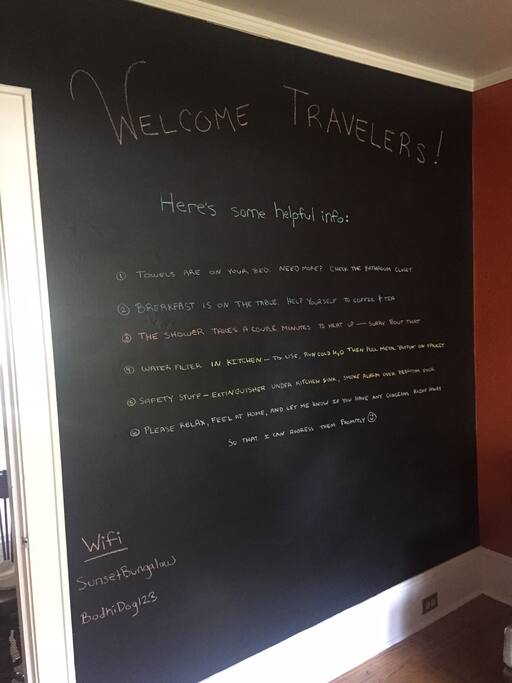 WELCOME TRAVELERS!
Here's some helpful info:
① TOWELS ARE ON YOUR BED. NEED MORE? CHECK THE BATHROOM CLOSET
② BREAKFAST IS ON THE TABLE. HELP YOURSELF TO COFFEE & TEA
③ THE SHOWER TAKES A COUPLE MINUTES TO HEAT UP — SORRY 'BOUT THAT
④ WATER FILTER IN KITCHEN — TO USE, RUN COLD H₂O THEN PULL METAL BUTTON ON FAUCET
⑤ SAFETY STUFF — EXTINGUISHER UNDER KITCHEN SINK, SMOKE ALARM OVER BEDROOM DOOR
⑥ PLEASE RELAX, FEEL AT HOME, AND LET ME KNOW IF YOU HAVE ANY CONCERNS RIGHT AWAY
SO THAT I CAN ADDRESS THEM PROMPTLY ☺
Wifi
SunsetBungalow
BodhiDog123